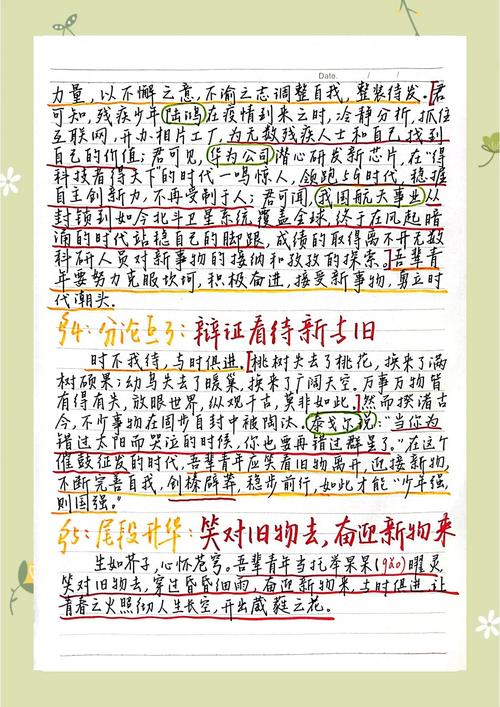 Date. / /
力量，以不懈之意，不渝之志调整自我，整装待发。[君
可知，残疾少年陆鸿在疫情到来之时，冷静分析，抓住
互联网，开办相片工厂，为无数残疾人士和自己找到
自己的价值；君可见，华为公司潜心研发新芯片，在“得
科技者得天下”的时代一鸣惊人，领跑5G时代，稳握
自主创新力，不再受制于人；君可闻，我国航天事业从
封锁到如今北斗卫星系统覆盖全球，终于在风起暗
涌的时代站稳自己的脚跟，成绩的取得离不开无数
科研人员对新事物的接纳和孜孜的探索。]吾辈青
年要努力克服坎坷，积极奋进，接受新事物，勇立时
代潮头。
§4：分论点3：辩证看待新与旧
时不我待，与时俱进。[桃树失去了桃花，换来了满
树硕果；幼鸟失去了暖巢，换来了广阔天空。万事万物皆
有得有失，放眼世界，纵观千古，莫非如此。]然而揆诸古
今，不少事物在固步自封中被淘汰。泰戈尔说：“当你为
错过太阳而哭泣的时候，你也要再错过群星了。”在这个
催鼓征发的时代，吾辈青年应笑看旧物离开，迎接新物，
不断完善自我，剑榛辟莽，稳步前行，如此才能“少年强，
则国强。”
§5：尾段升华：笑对旧物去，奋迎新物来
生如芥子，心怀苍穹。吾辈青年当托举杲杲(gǎo)曜灵
笑对旧物去，穿过昏昏细雨，奋迎新物来，与时俱进，让
青春之火照彻人生长空，开出葳蕤之花。